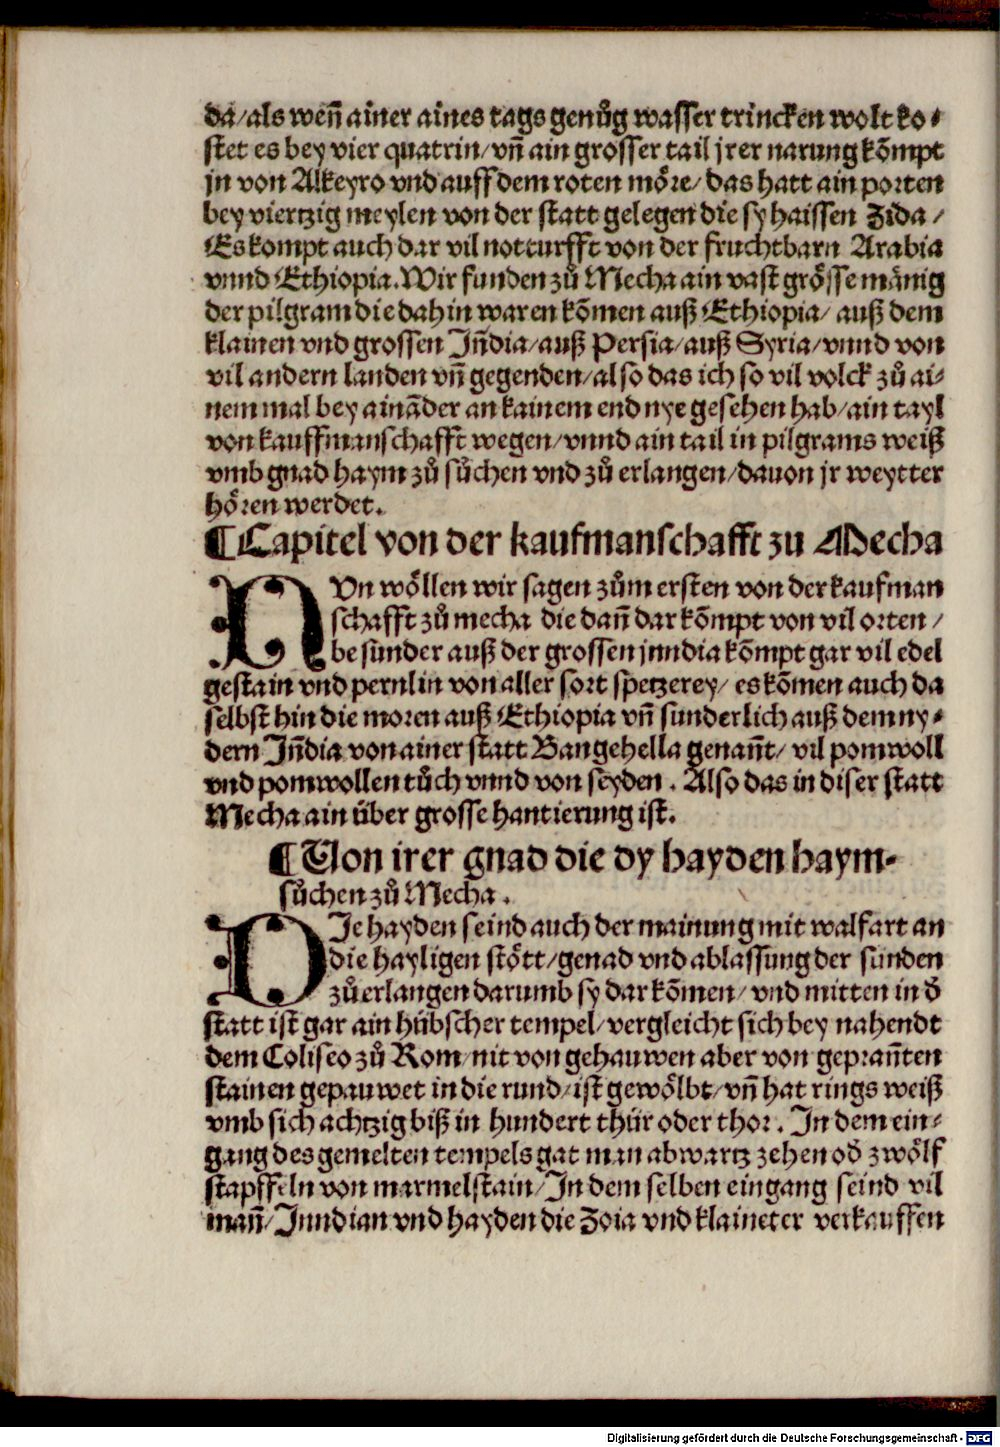 da/als weñ ainer aines tags genůg wasser trincken wolt ko⸗
stet es bey vier quatrin/vñ ain grosser tail jrer narung kõmpt
jn von Alkeyro vnd auff dem roten möre/das hatt ain porten
bey viertzig meylen von der statt gelegen die sy haissen Zida/
Es kompt auch dar vil notturfft von der fruchtbarn Arabia
vnnd Ethiopia. Wir funden zů Mecha ain vast grösse mänig
der pilgram die dahin waren kõmen auß Ethiopia/ auß dem
klainen vnd grossen Jñdia/auß Persia/auß Syria/vnnd von
vil andern landen vñ gegenden/also das ich so vil volck zů ai⸗
nem mal bey ainãder an kainem end nye gesehen hab/ain tayl
von kauffmanschafft wegen/vnnd ain tail in pilgrams weiß
vmb gnad haym zů sůchen vnd zů erlangen/dauon jr weytter
hören werdet.
¶Capitel von der kaufmanschafft zu Mecha
NVn wöllen wir sagen zům ersten von der kaufman
schafft zů mecha die dañ dar kõmpt von vil orten/
besunder auß der grossen jnndia kõmpt gar vil edel
gestain vnd pernlin von aller sort spetzerey/ es kõmen auch da
selbst hin die moren auß Ethiopia vñ sunderlich auß dem ny⸗
dern Jñdia von ainer statt Bangehella genañt/ vil pomwoll
vnd pomwollen tůch vnnd von seyden. Also das in diser statt
Mecha ain über grosse hantierung ist.
¶Von irer gnad die dy hayden haym⸗
sůchen zů Mecha.
DJe hayden seind auch der mainung mit walfart an
die hayligen stött/genad vnd ablassung der sünden
zů erlangen darumb sy dar kõmen/ vnd mitten in d̄
statt ist gar ain hübscher tempel/vergleicht sich bey nahendt
dem Coliseo zů Rom/nit von gehauwen aber von geprañten
stainen gepauwet in die rund/ist gewölbt/vñ hat rings weiß
vmb sich achtzig biß in hundert thür oder thor. Jn dem ein⸗
gang des gemelten tempels gat man abwartz zehen od̄ zwölf
stapffeln von marmelstain/Jn dem selben eingang seind vil
mañ/Jnndian vnd hayden die Zoia vnd klaineter verkauffen
Digitalisierung gefördert durch die Deutsche Forschungsgemeinschaft - DFG